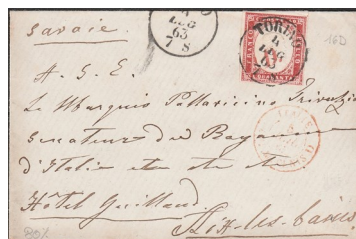 Savoie.
4
LUG
63
7 S
TORINO
4
LUG
63
7 S
FRANCO
BOLLO
16D
A. S. E.
Le Marquis Pallavicino Trivulzio
Senateur du Royaume
d'Italie etc etc etc
Hôtel Guilland
Aix-les-bains